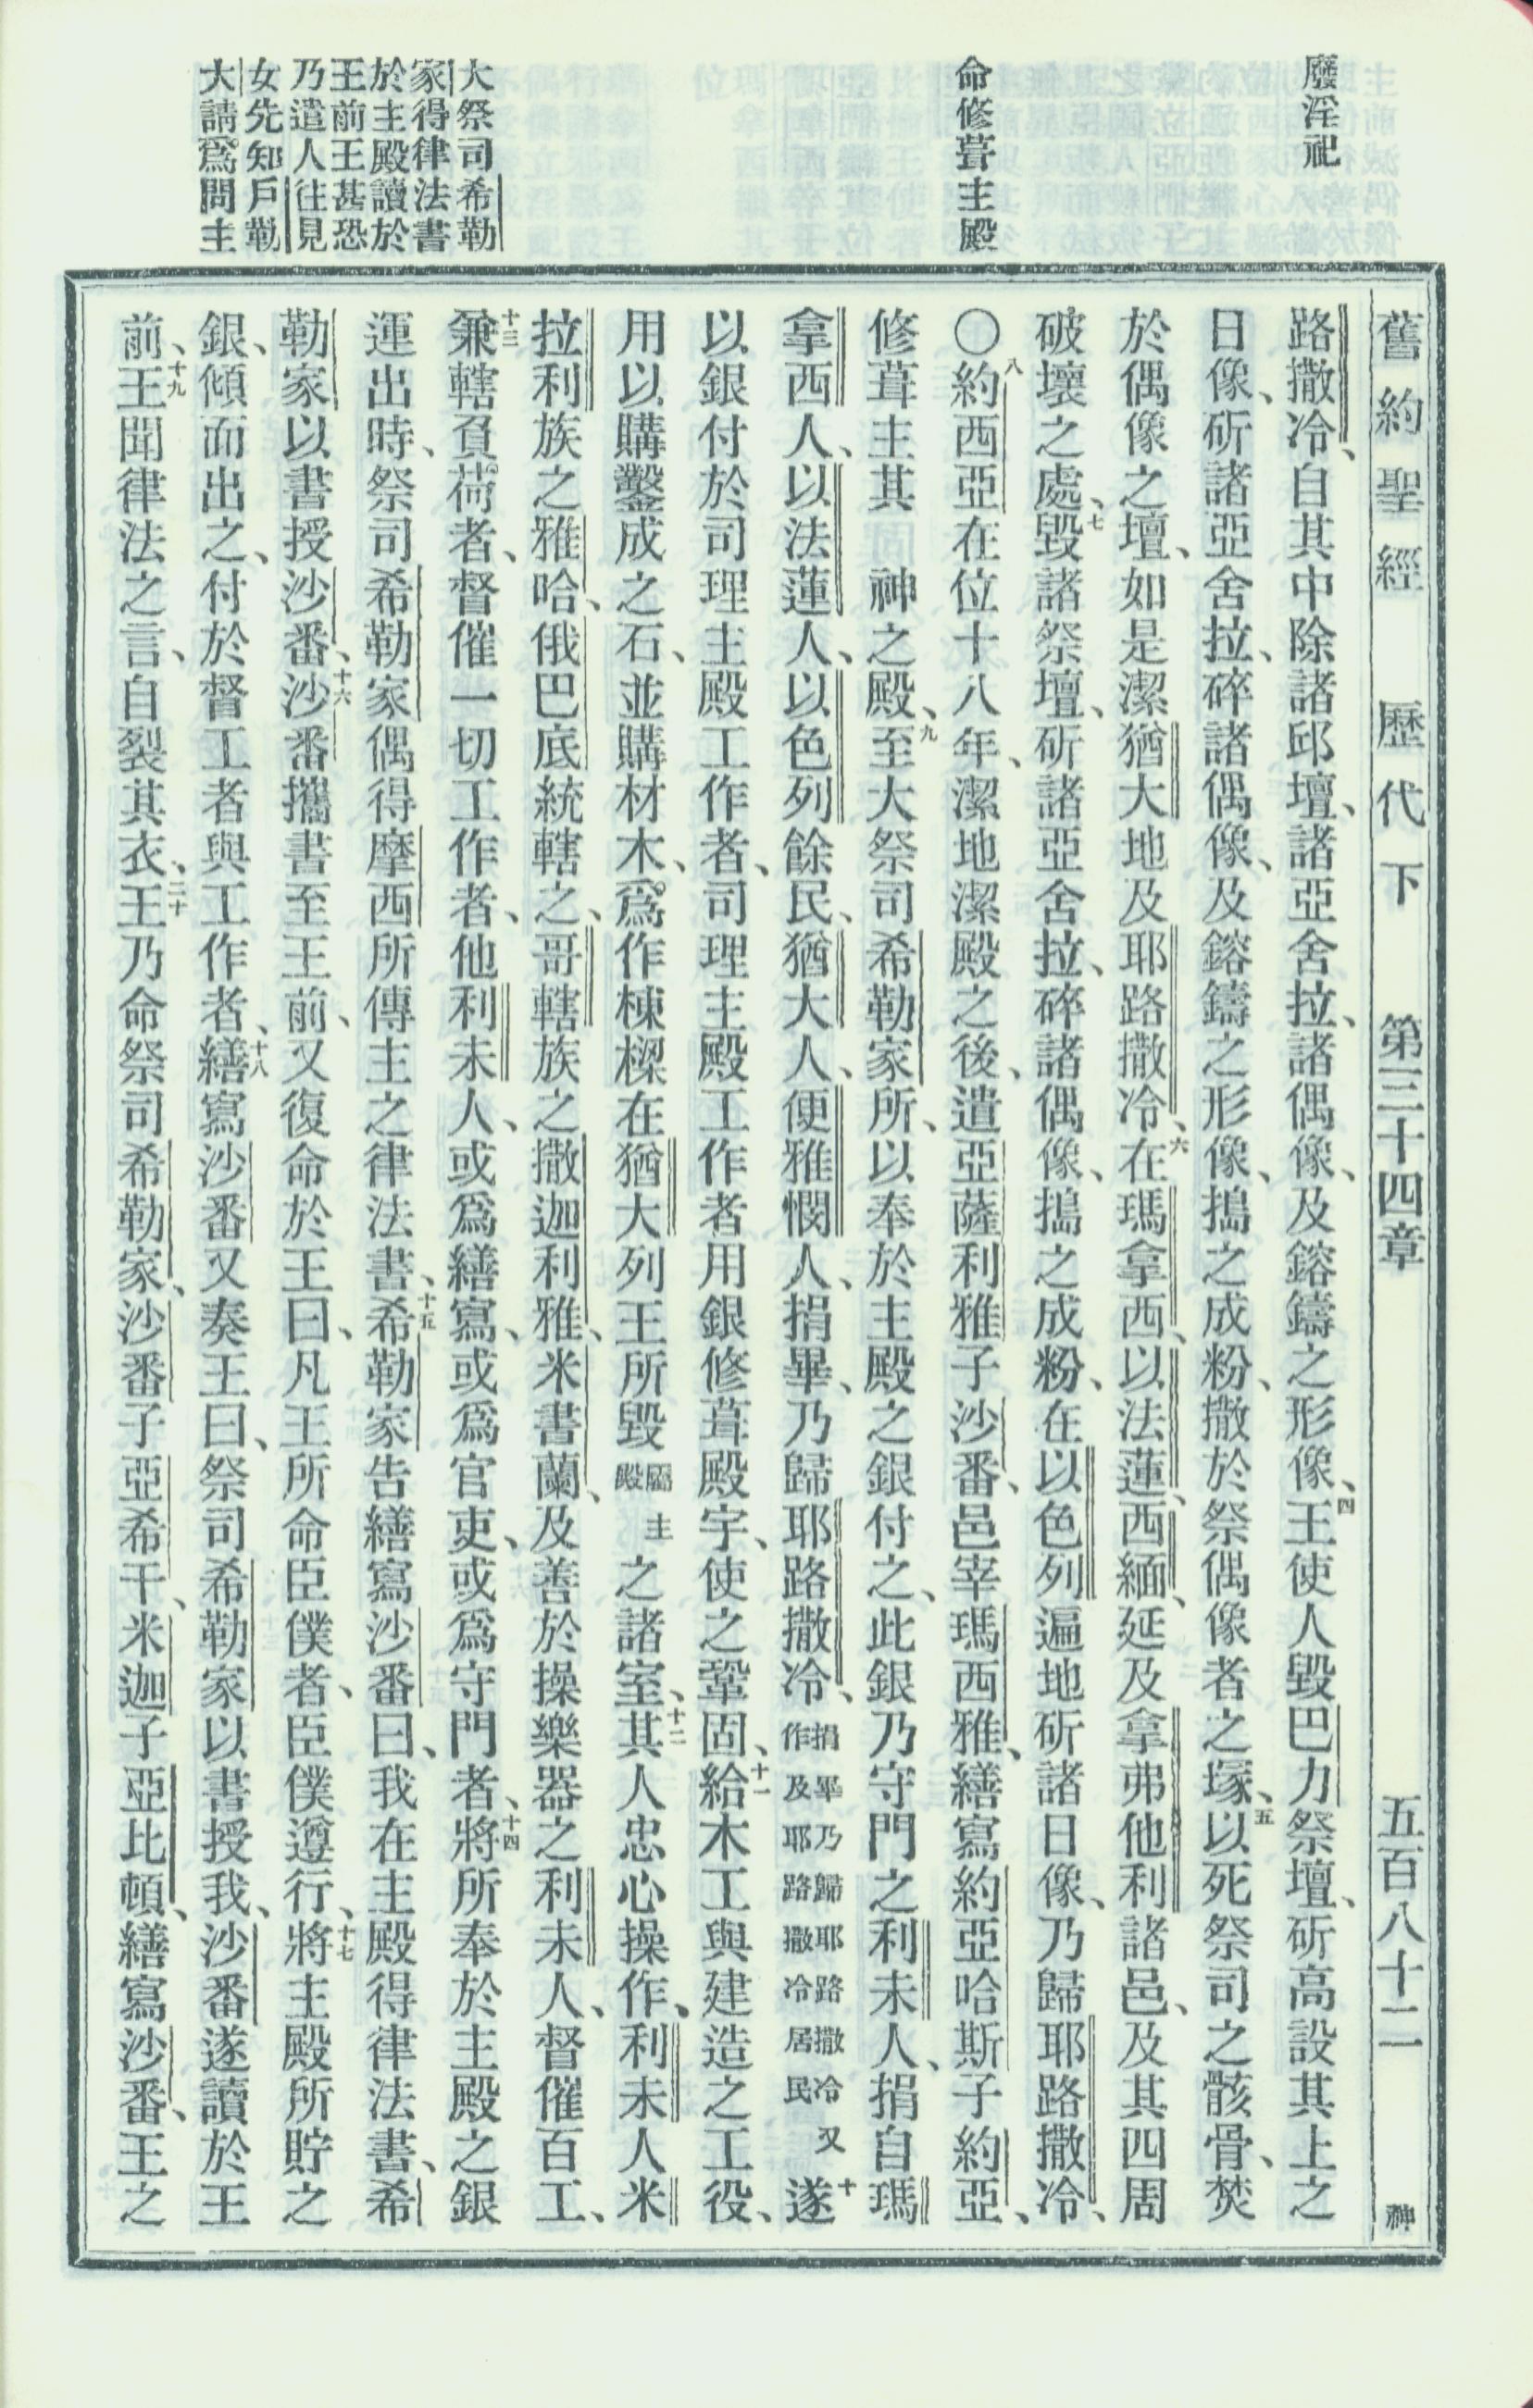 廢淫祀
命修葺主殿
大祭司希勒
家得律法書
於主殿讀於
王前王甚恐
乃遣人往見
女先知戶勒
大請爲問主
舊約聖經 歷代下 第三十四章 五百八十二 神
路撒冷、自其中除諸邱壇、諸亞舍拉、諸偶像、及鎔鑄之形像、四王使人毀巴力祭壇、斫高設其上之
日像、斫諸亞舍拉、碎諸偶像、及鎔鑄之形像、搗之成粉、撒於祭偶像者之塚、五以死祭司之骸骨、焚
於偶像之壇、如是潔猶大地及耶路撒冷、六在瑪拿西、以法蓮、西緬、延及拿弗他利諸邑、及其四周
破壞之處、七毀諸祭壇、斫諸亞舍拉、碎諸偶像、搗之成粉、在以色列遍地斫諸日像、乃歸耶路撒冷、
〇八約西亞在位十八年、潔地潔殿之後、遣亞薩利雅子沙番、邑宰瑪西雅、繕寫約亞哈斯子約亞、
修葺主其 神之殿、九至大祭司希勒家所、以奉於主殿之銀付之、此銀乃守門之利未人、捐自瑪
拿西人、以法蓮人、以色列餘民、猶大人、便雅憫人、捐畢、乃歸耶路撒冷、捐畢乃歸耶路撒冷又作及耶路撒冷居民十遂
以銀付於司理主殿工作者、司理主殿工作者用銀修葺殿宇、使之鞏固、十一給木工與建造之工役、
用以購鑿成之石、並購材木、爲作棟樑在猶大列王所毀屬主殿之諸室、十二其人忠心操作、利未人米
拉利族之雅哈、俄巴底統轄之、哥轄族之撒迦利雅、米書蘭、及善於操樂器之利未人、督催百工、
十三兼轄負荷者、督催一切工作者、他利未人、或爲繕寫、或爲官吏、或爲守門者、十四將所奉於主殿之銀
運出時、祭司希勒家偶得摩西所傳主之律法書、十五希勒家告繕寫沙番曰、我在主殿得律法書、希
勒家以書授沙番、十六沙番攜書至王前、又復命於王曰、凡王所命臣僕者、臣僕遵行、十七將主殿所貯之
銀、傾而出之、付於督工者與工作者、十八繕寫沙番又奏王曰、祭司希勒家以書授我、沙番遂讀於王
前、十九王聞律法之言、自裂其衣、二十王乃命祭司希勒家、沙番子亞希干、米迦子亞比頓、繕寫沙番、王之